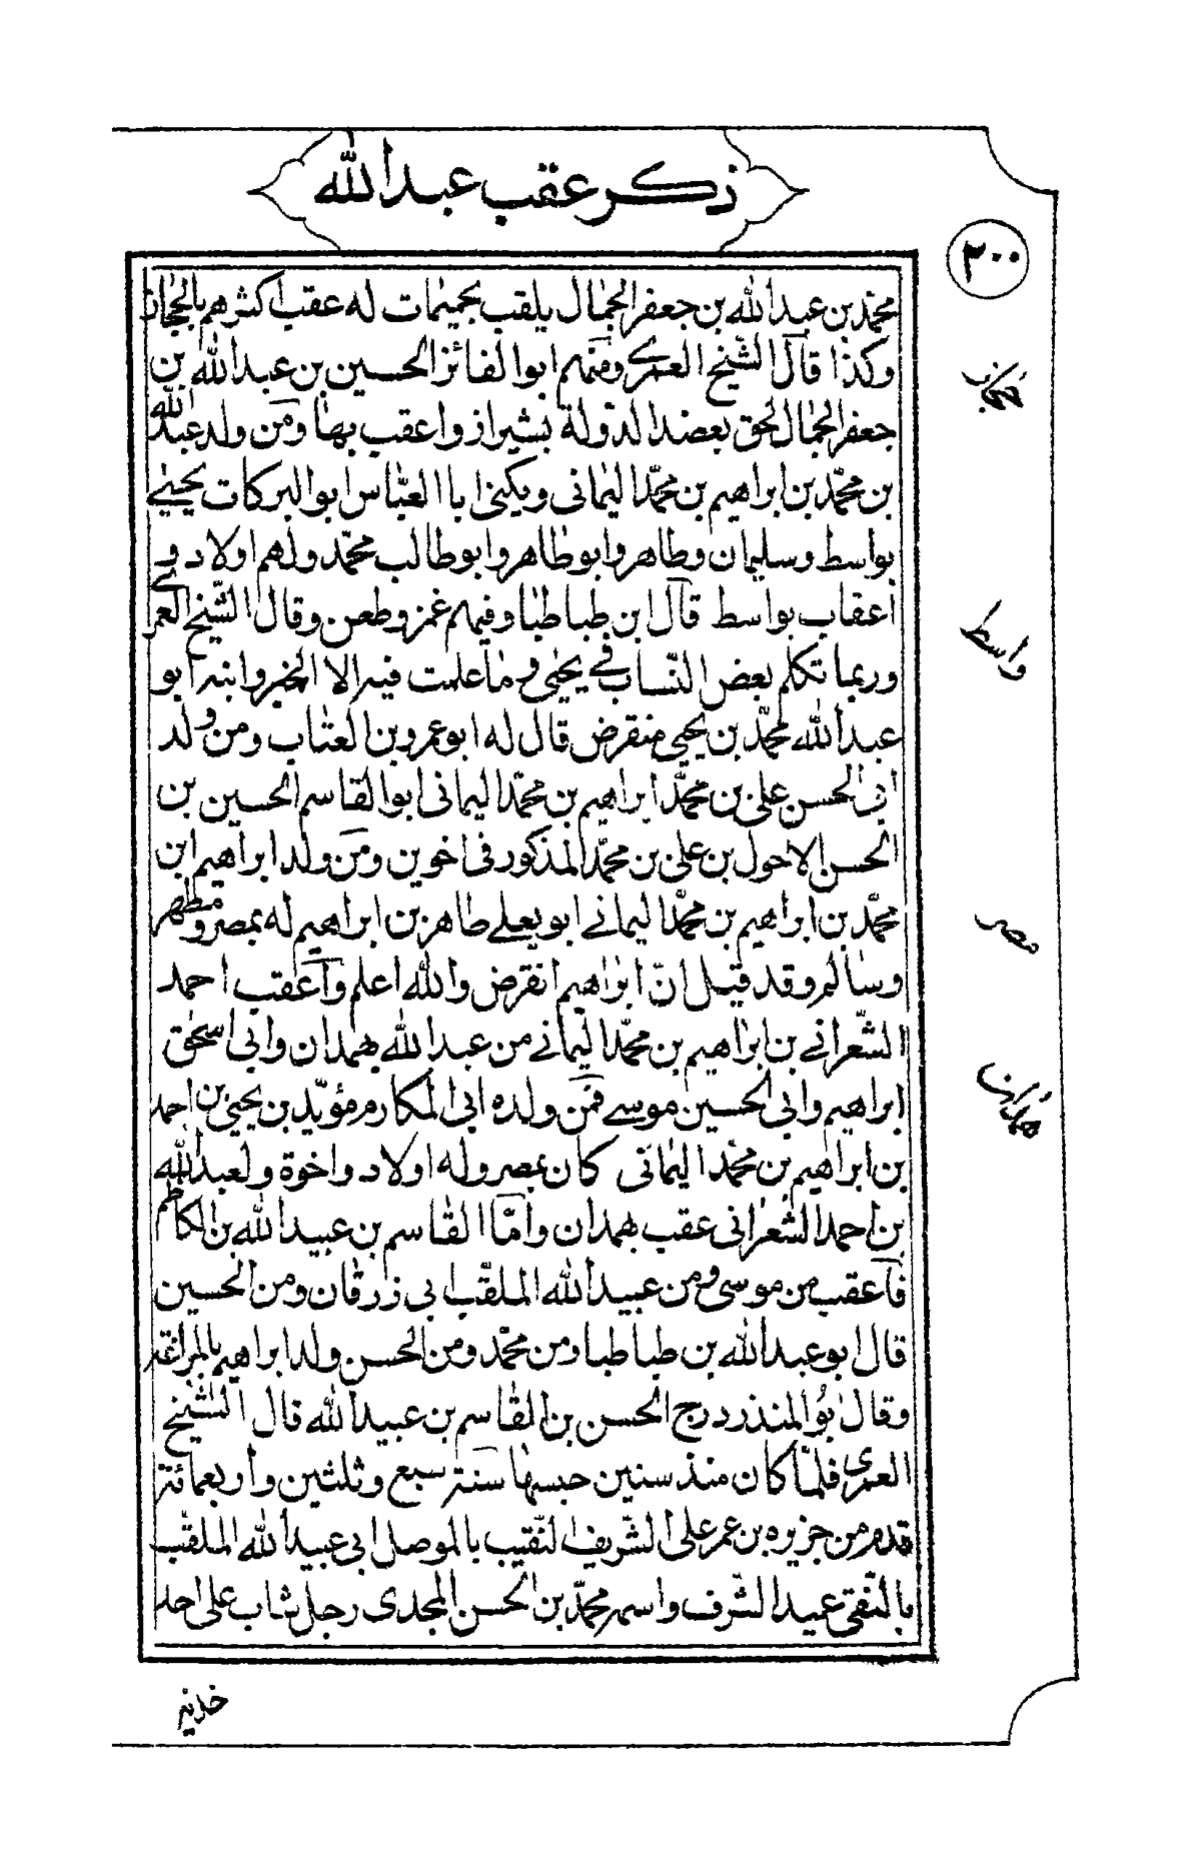 ذكر عقب عبدالله
٢٠٠
محمّد بن عبدالله بن جعفر الجمال يلقب بجميمات له عقب اكثرهم بالحجاز
وكذا قال الشّيخ العمري ومنهم ابو الفائز الحسين بن عبدالله بن
جعفر الجمال لحق بعضد الدولة بشيراز واعقب بها ومن ولد عبدالله
بن محمّد بن ابراهيم بن محمّد اليمانى ويكنى ابا العبّاس ابو البركات يحيى
بواسط وسليمان وطاهر وابو طاهر وابو طالب محمّد ولهم اولاد و
اعقاب بواسط قال ابن طباطبا وفيهم غمز وطعن وقال الشّيخ العمرى
وربما تكلم بعض النّساب فى يحيى وما علمت فيه الا الخير وابنه ابو
عبدالله محمّد بن يحيى منقرض قال له ابو عمرو بن العتاب ومن ولد
ابى الحسن على بن محمّد ابراهيم بن محمّد اليمانى ابو القاسم الحسين بن
الحسن الاحول بن على بن محمّد المذكور فى اخوين ومن ولد ابراهيم ابن
محمّد بن ابراهيم بن محمّد اليمانے ابو يعلے طاهر بن ابراهيم له بمصر ومطهر
وسالم وقد قيل انّ ابراهيم انقرض والله اعلم واعقب احمد
الشّعرانے بن ابراهيم بن محمّد اليمانے من عبدالله بهمدان وابى اسحق
ابراهيم وابى الحسين موسے فمن ولده ابى المكارم مؤيّد بن يحيى بن احمد
بن ابراهيم بن محمّد اليمانى كان بمصر وله اولاد واخوة ولعبدالله
بن احمد الشعرانى عقب بهمدان وامّا القاسم بن عبيدالله بن الكاظم
فاعقب من موسى ومن عبيدالله الملقّب ابى زرقان ومن الحسين
قال ابو عبدالله بن طباطبا ومن محمّد ومن الحسن ولد ابراهيم بالمراغة
وقال ابو المنذر درج الحسن بن القاسم بن عبيدالله قال الشّيخ
العمرى فلمّا كان منذ سنين حسبها سنة سبع وثلثين واربعمائة
قدم من جزيره بن عمر على الشّريف النّقيب بالموصل ابى عبيدالله الملقّب
بالتّقى عميد الشّرف واسمه محمّد بن الحسن المجدى رجل شاب على احد
حجاز
واسط
مصر
همدان